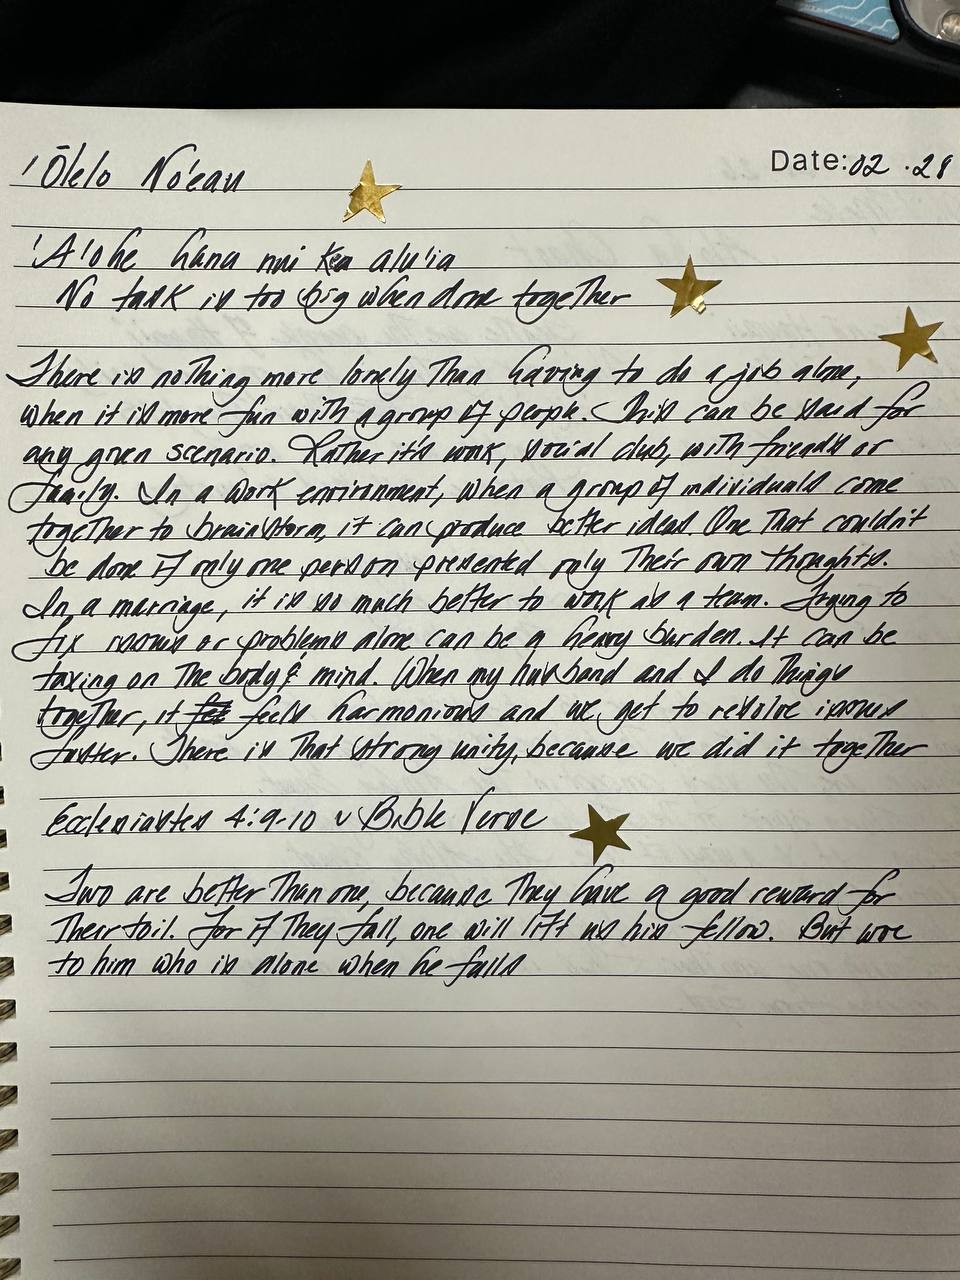 'Ōlelo No'eau
Date: 02 .28
'A'ohe hana nui ke alu'ia
No task is too big when done together
There is nothing more lonely than having to do a job alone,
when it is more fun with a group of people. This can be said for
any given scenario. Rather it's work, social club, with friends or
family. In a work environment, when a group of individuals come
together to brainstorm, it can produce better ideas. One that couldn't
be done if only one person presented only their own thoughts.
In a marriage, it is so much better to work as a team. Trying to
fix issues or problems alone can be a heavy burden. It can be
taxing on the body & mind. When my husband and I do things
together, it feels harmonious and we get to resolve issues
faster. There is that strong unity, because we did it together
Ecclesiastes 4:9-10 v Bible Verse
Two are better than one, because they have a good reward for
their toil. For if they fall, one will lift us his fellow. But woe
to him who is alone when he falls